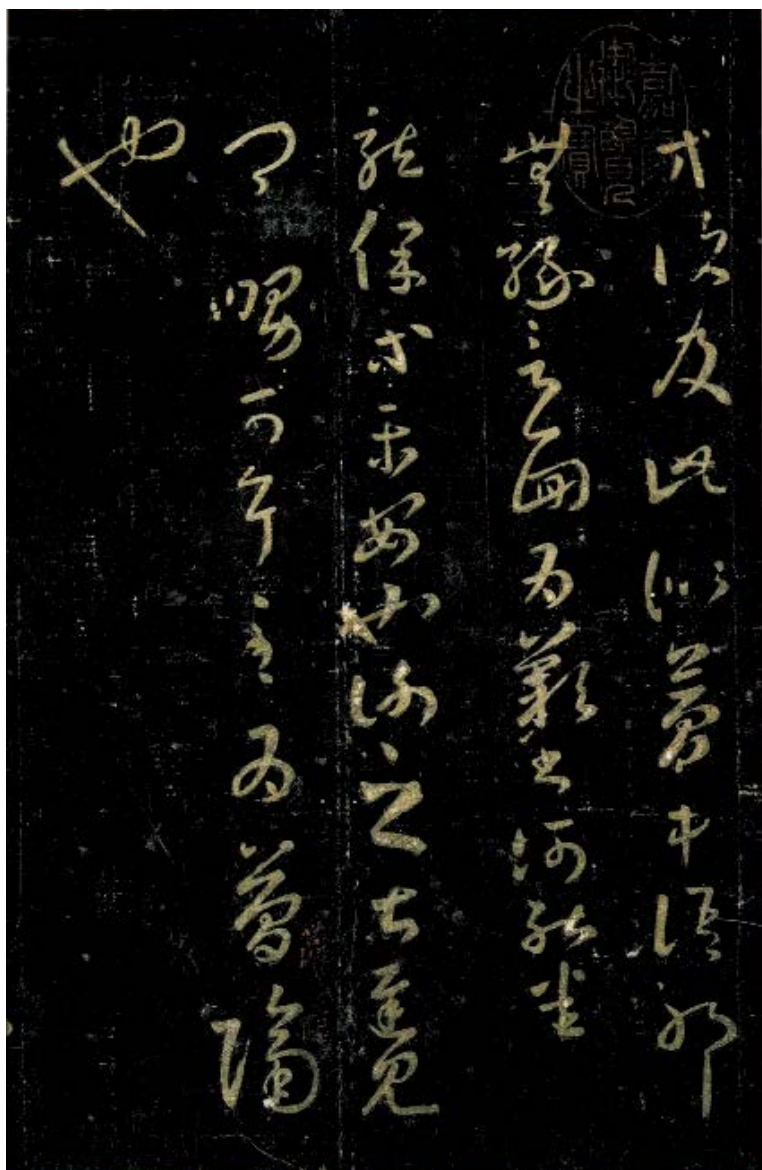 嘉慶御覽之寶
方復及此似夢中語耶
無緣言面為歎書何能悉
龍保等平安也謝之甚遲見
卿舅可耳至為簡隔
也